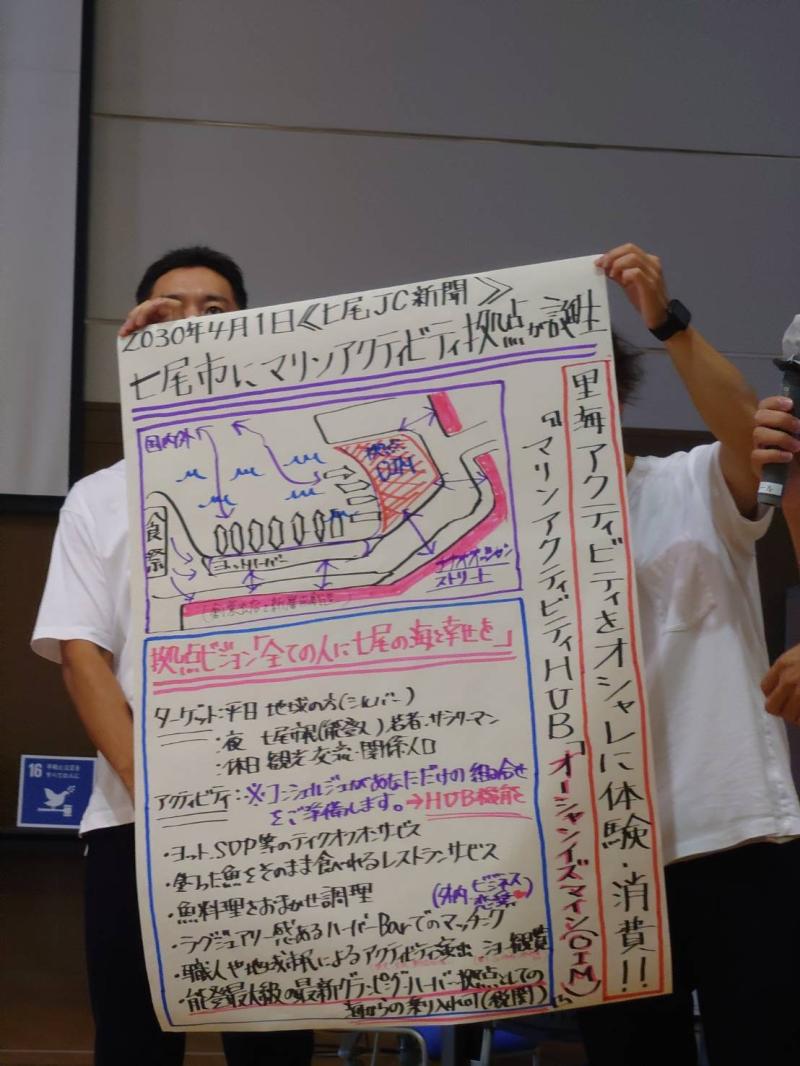 2030年4月1日《七尾JC新聞》
七尾市にマリンアクティビティ拠点が誕生
里海アクティビティをオシャレに体験・消費!!
『マリンアクティビティHUB「オーシャンイズマイン(OIM)
国内外
拠点
OIM
食祭
ヨットハーバー
ストリート
拠点ビジョン「全ての人に七尾の海を幸せを」
ターゲット:平日 地域の方(シルバー)
・夜 七尾市民(能登人)若者・サラリーマン
:休日 観光・交流・関係人口
アクティビティ:※コンシェルジュがあなただけの組合せ
をご準備します。→HUB機能
・ヨット、SUP等のテイクオフオンサービス
・釣った魚をそのまま食べれるレストランサービス
・魚料理をおまかせ調理
(外内・ビジネス
恋愛)
・ラグジュアリー感あるハーバーBarでのマッチング
・職人や地域市民によるアクティビティ演出 ショー観覧
・能登最大級の最新グランピングハーバー拠点としての
海からの乗り入れOK(税関)
16
平和と公正を
すべての人に